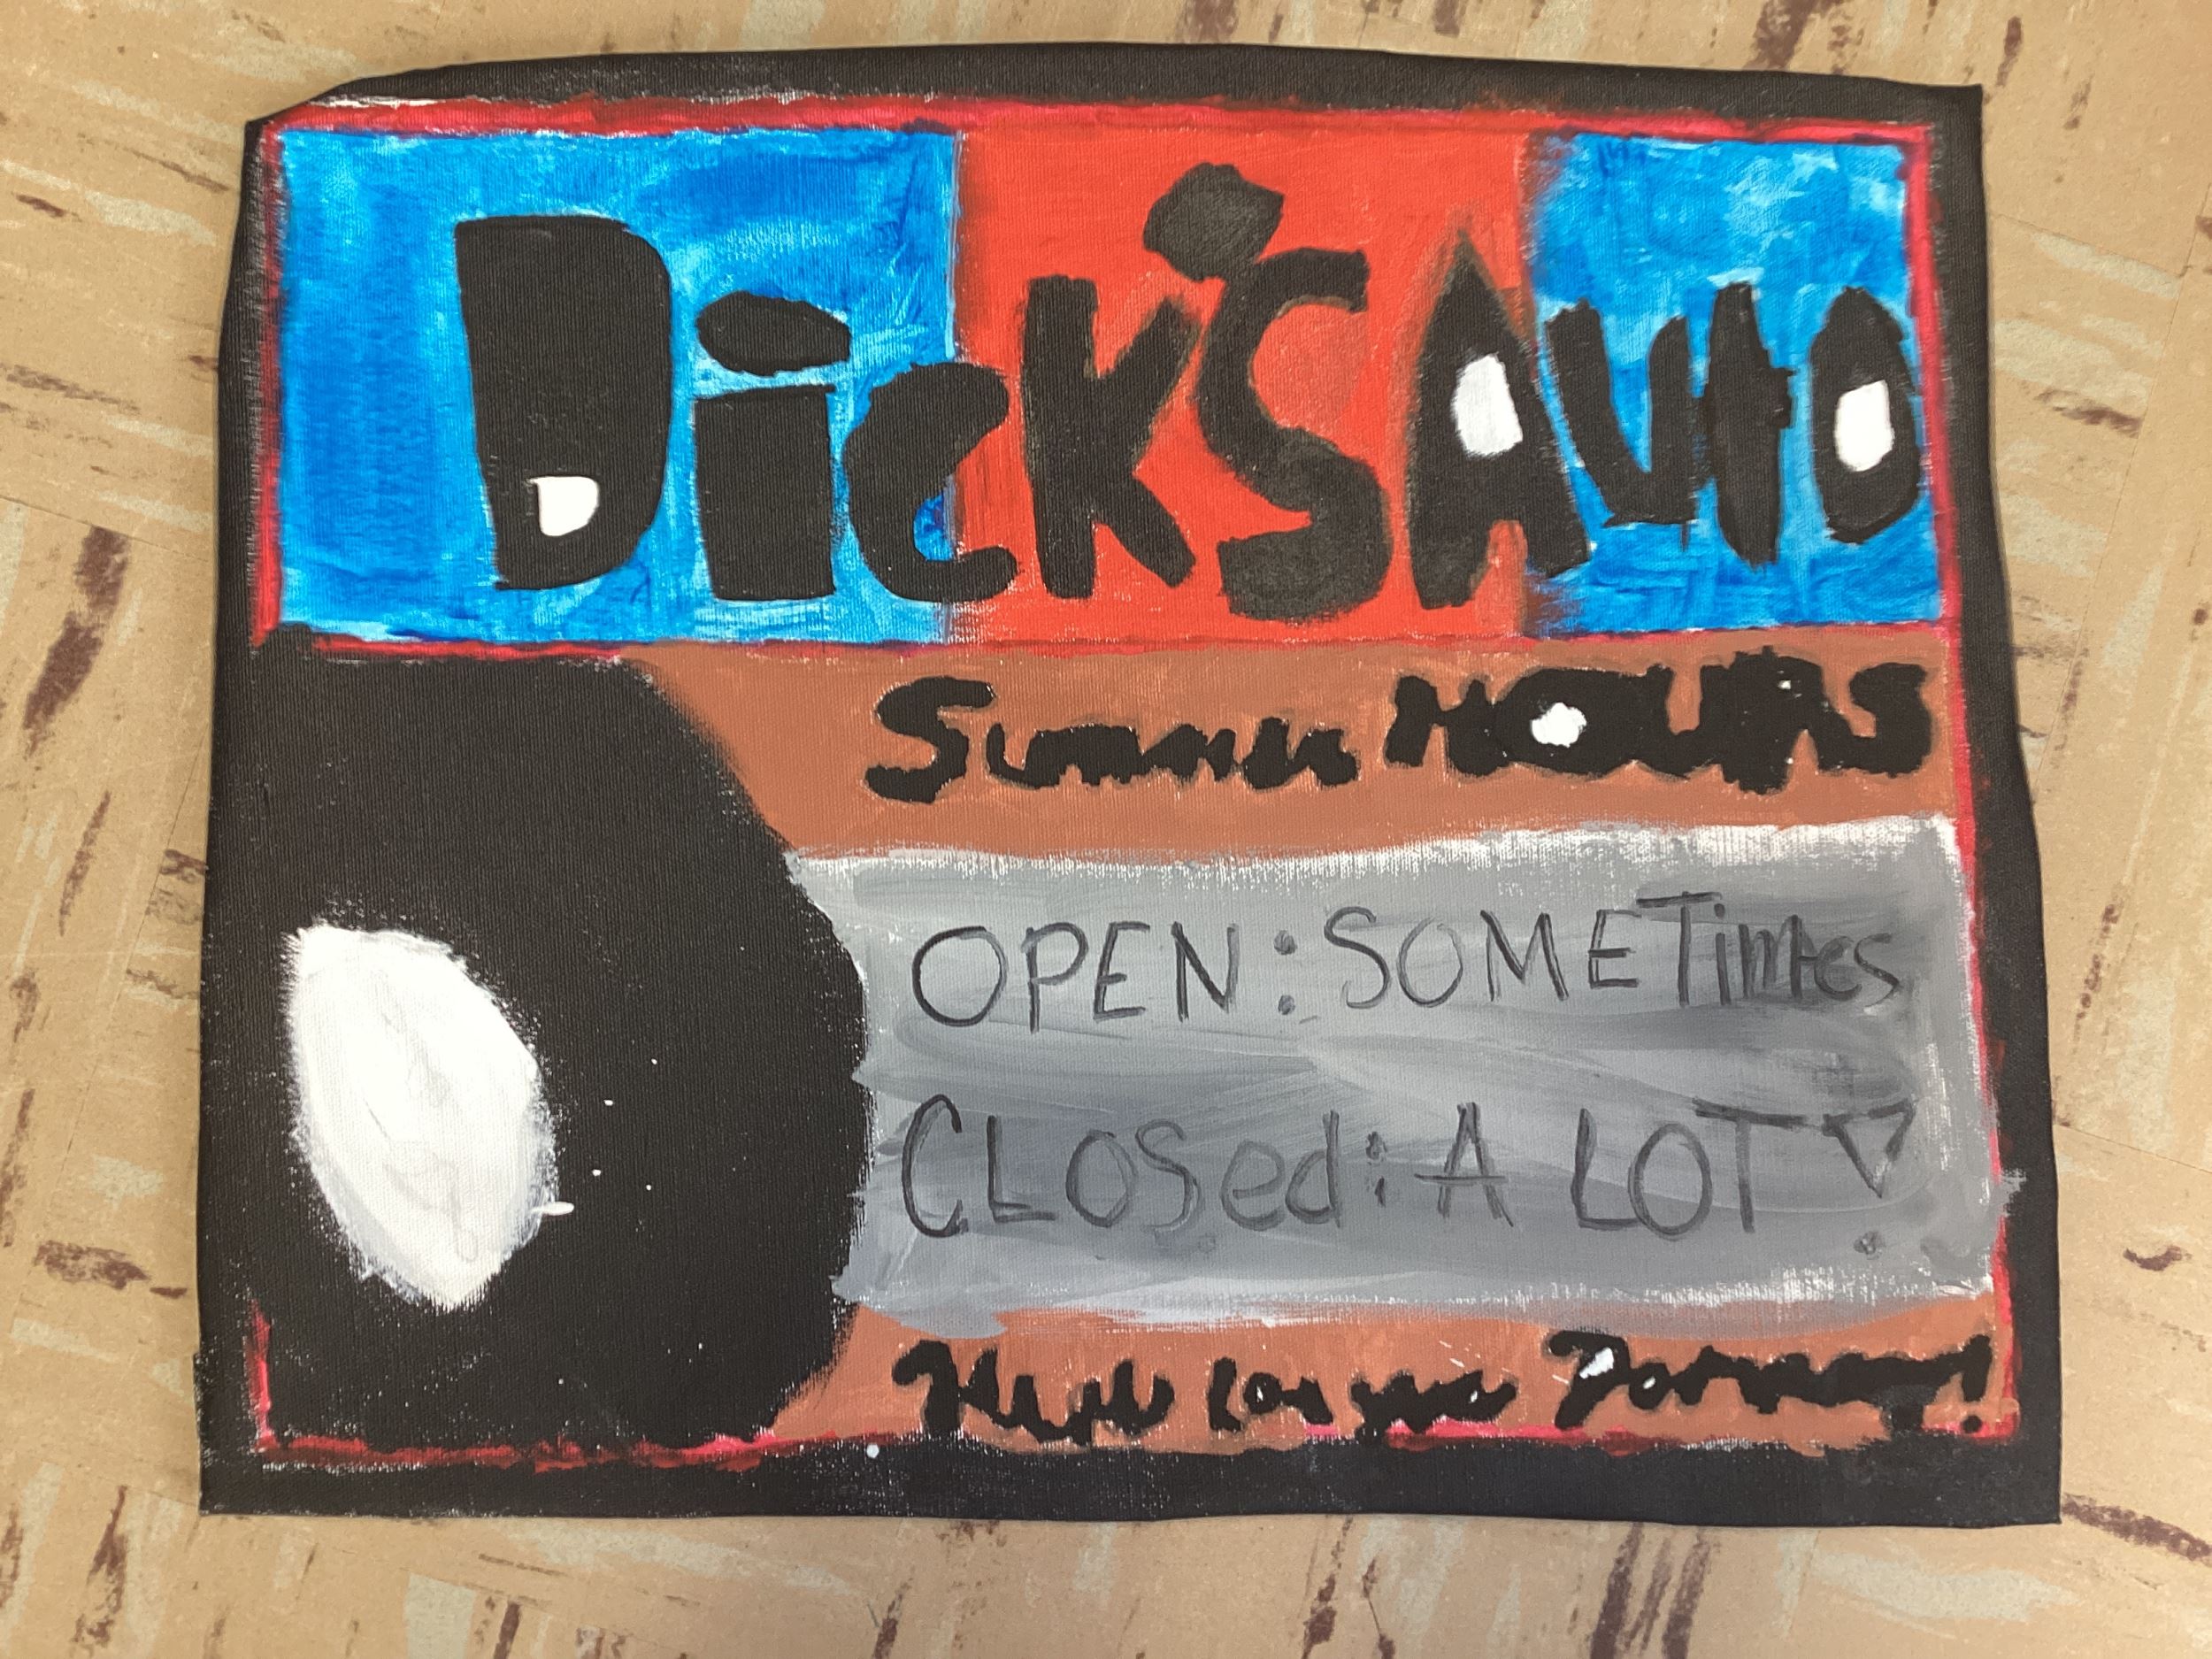 Dick's Auto
Summer HOURS
OPEN: SOMETimes
CLOSed: A LOT!